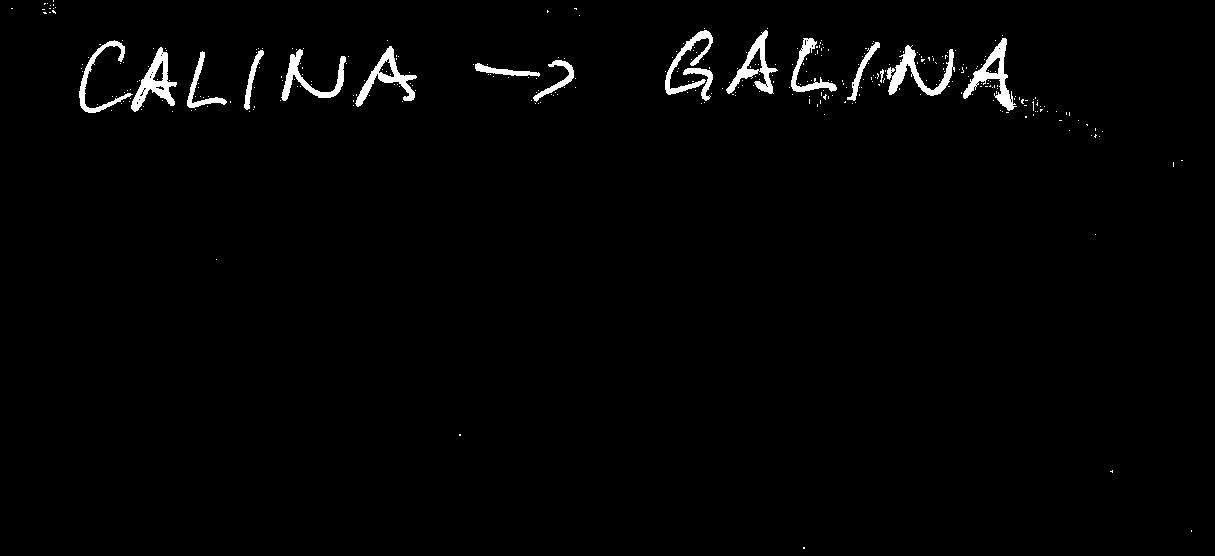 CALINA → GALINA